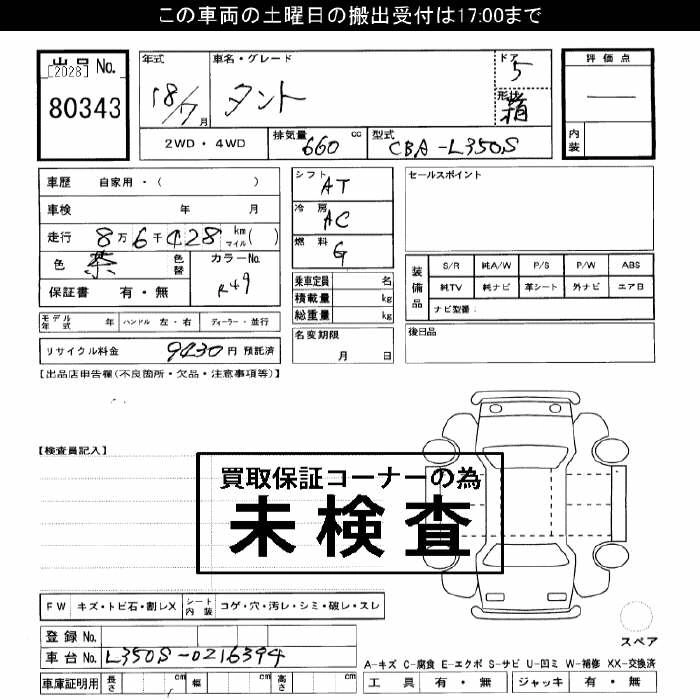 この車両の土曜日の搬出受付は17:00まで
出品 No.
[2028]
80343
年式
18/7 月
車名・グレード
タント
ドア
5
形状
箱
評価点
―
内装
2WD・4WD
排気量 660 cc
型式 CBA-L350S
車歴 自家用・( )
車検 年 月
走行 8万6千428 km マイル( )
色 茶 色替
カラーNo. R49
保証書 有・無
シフト AT
冷房 AC
燃料 G
乗車定員 名
積載量 kg
総重量 kg
名変期限
月 日
セールスポイント
装備品
S/R 純A/W P/S P/W ABS
純TV 純ナビ 革シート 外ナビ エアB
ナビ型番:
後日品
モデル年式 年 ハンドル 左・右 ディーラー・並行
リサイクル料金 9430 円 預託済
【出品店申告欄(不良箇所・欠品・注意事項等)】
【検査員記入】
買取保証コーナーの為
未検査
FW キズ・トビ石・割レX シート内装 コゲ・穴・汚レ・シミ・破レ・スレ
登録 No.
車台 No. L350S-0216394
車庫証明用 長さ cm 幅 cm 高さ cm
スペア
A-キズ C-腐食 E-エクボ S-サビ U-凹ミ W-補修 XX-交換済
工具 有・無 ジャッキ 有・無